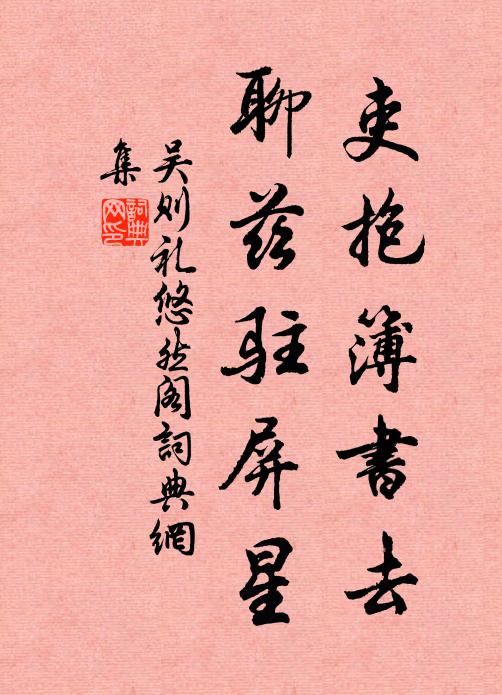 吏抱簿書去
聊兹駐屏星
吴则礼悠然阁詞典網
集
詞典网印